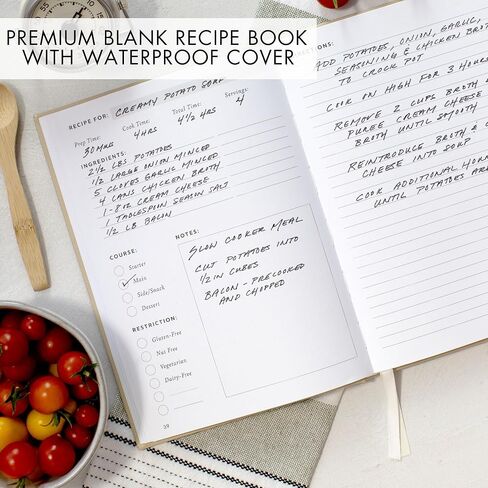 PREMIUM BLANK RECIPE BOOK
WITH WATERPROOF COVER
RECIPE FOR: CREAMY POTATO SOUP
Prep Time: Cook Time: Total Time: Servings:
30 MINS 4 HRS 4 1/2 HRS 4
INGREDIENTS:
2 1/2 LBS POTATOES
1/2 LARGE ONION MINCED
5 CLOVES GARLIC MINCED
4 CANS CHICKEN BROTH
1-8 OZ CREAM CHEESE
1 TABLESPOON SEASON SALT
1/2 LB BACON
COURSE:
Starter
Main
Side/Snack
Dessert
RESTRICTION:
Gluten-Free
Nut Free
Vegetarian
Dairy-Free
59
NOTES:
SLOW COOKER MEAL
CUT POTATOES INTO
1/2 IN CUBES
BACON - PRECOOKED
AND CHOPPED
ADD POTATOES, ONION, GARLIC,
SEASONING & CHICKEN BROTH
TO CROCK POT
COOK ON HIGH FOR 3 HOURS
REMOVE 2 CUPS BROTH &
PUREE CREAM CHEESE
BROTH UNTIL SMOOTH
REINTRODUCE BROTH &
CHEESE INTO SOUP
COOK ADDITIONAL HOUR
UNTIL POTATOES ARE